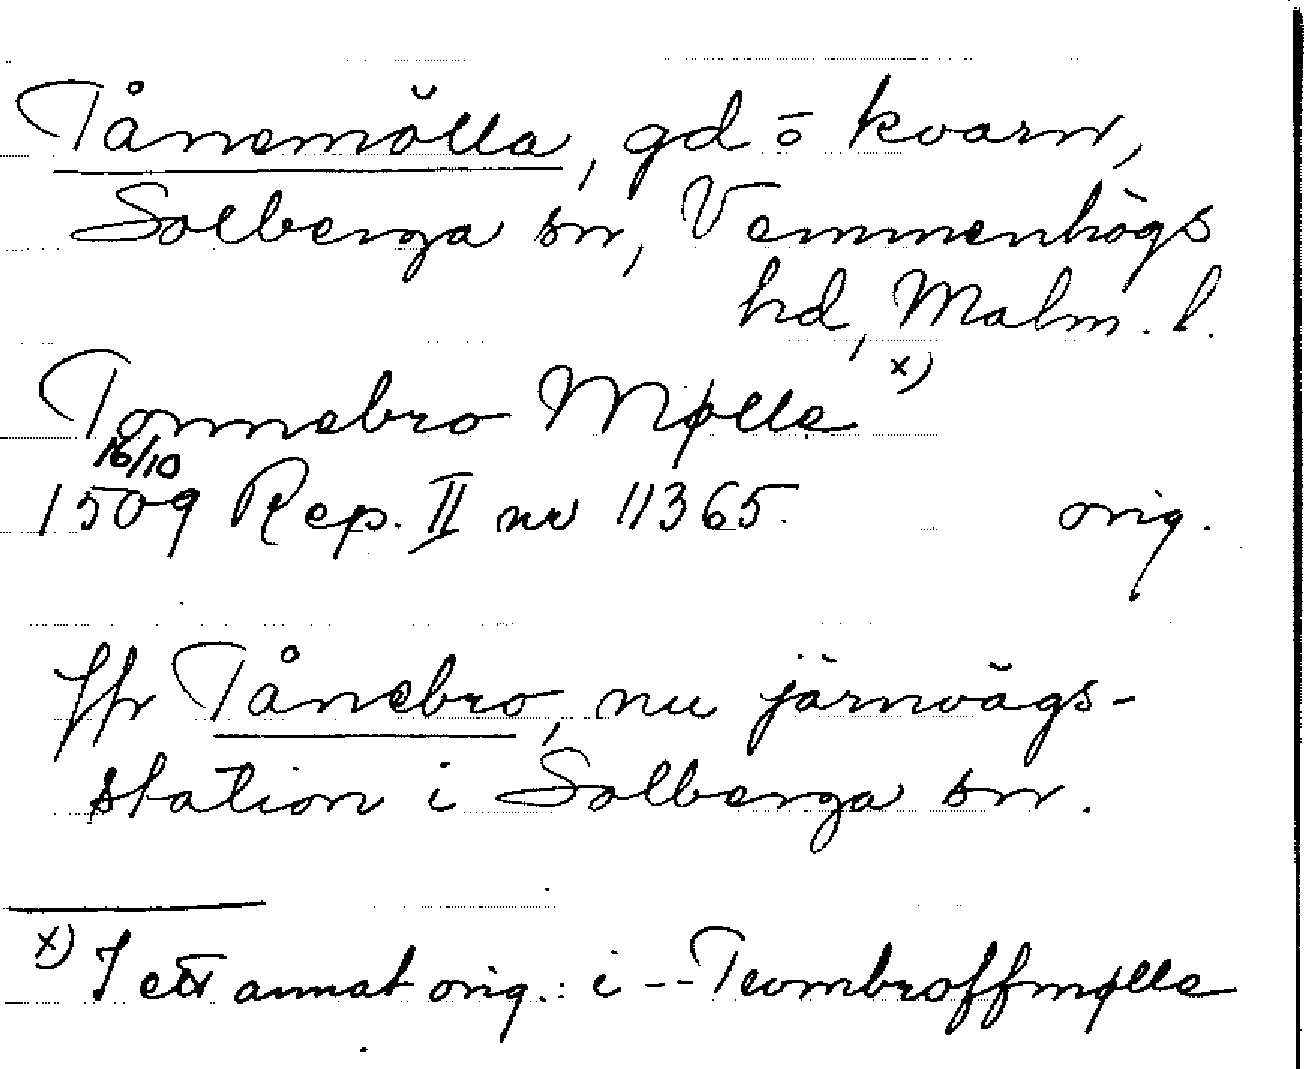 Tånemölla, gd ō kvarn,
Solberga sn, Vemmenhögs
hd, Malm. l.
Tonnebro Mølle x)
16/10
1509 Rep. II nr 11365. orig.
Jfr Tånebro, nu järnvägs-
station i Solberga sn.
x) I ett annat orig.: i -- Twmbroffmølle